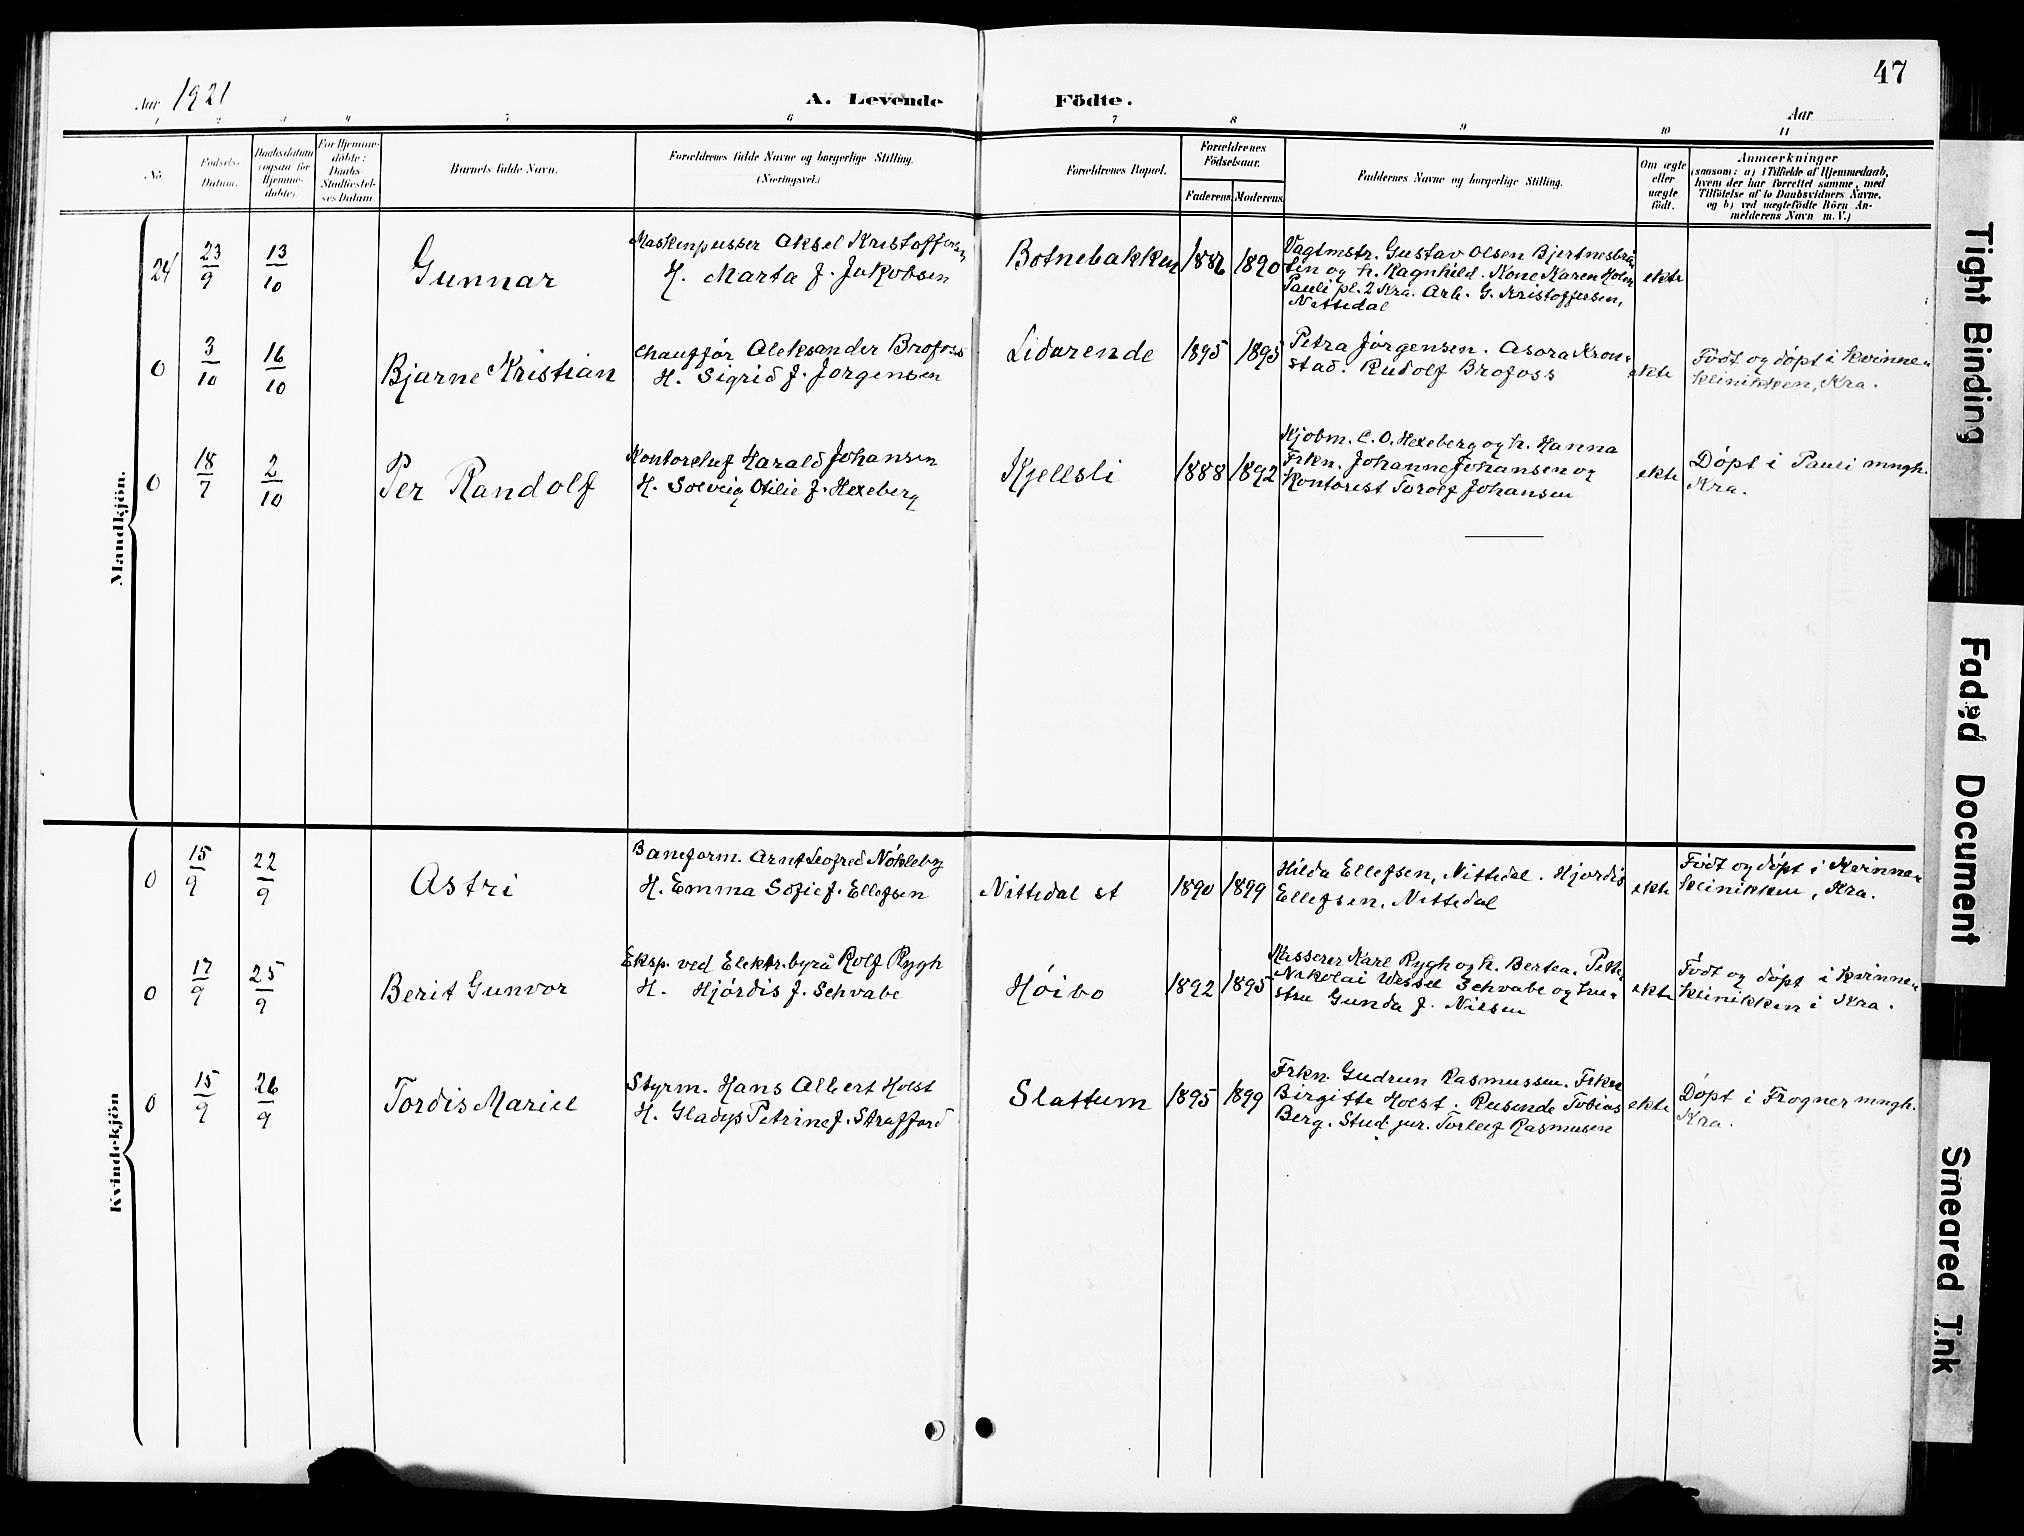 47
Aar 1921
A. Levende Födte.
Aar
1 2 3 4 5 6 7 8 9 10 11
No.
Födsels-
Datum.
Daabsdatum
(ogsaa for
Hjemme-
döbte).
For Hjemme-
döbte:
Daabs-
Stadfæstel-
ses Datum.
Barnets fulde Navn.
Forældrenes fulde Navne og borgerlige Stilling.
(Næringsvei.)
Forældrenes Bopæl.
Forældrenes
Födselsaar.
Faderens Moderens
Faddernes Navne og borgerlige Stilling.
Om ægte
eller
uægte
født.
Anmærkninger
(saasom: a) i Tilfælde af Hjemmedaab,
hvem der har forrettet samme, med
Tilföielse af to Daabsvidners Navne,
og b) ved uægtefödte Börn An-
melderens Navn m. V.)
Mandkjön.
24 23/9 13/10 Gunnar
Maskinpusser Aksel Kristoffersen
H. Marta f. Jakobsen
Botnebakken 1886 1890
Vagtmstr. Gustav Olsen Bjertnesbrå-
ten og h. Ragnhild. Kone Karen Holm
Pauli pl. 2 Kra. Arb. G. Kristoffersen,
Nittedal
ekte
0 3/10 16/10 Bjarne Kristian
Chauffør Aleksander Brofoss
H. Sigrid f. Jørgensen
Lidarende 1895 1895
Petra Jørgensen. Asora Kron-
stad. Rudolf Brofoss
ekte
Født og døpt i Kvinne-
klinikken, Kra.
0 18/7 2/10 Per Randolf
Kontorchef Harald Johansen
H. Solveig Otilie f. Hexeberg
Kjellsli 1888 1892
Kjøbm. C. O. Hexeberg og h. Hanna
Frkn. Johanne Johansen og
Kontorist Torolf Johansen
ekte
Døpt i Pauli mngh.
Kra.
Kvindekjön
0 15/9 22/9 Astri
Baneform. Arnt Leofred Nökleby
H. Emma Sofie f. Ellefsen
Nittedal st 1890 1899
Hilda Ellefsen, Nittedal. Hjordis
Ellefsen, Nittedal
ekte
Født og døpt i Kvinne-
klinikken, Kra.
0 17/9 25/9 Berit Gunvor
Eksp. ved Elektr.byrå Rolf Rygh
H. Hjórdis f. Schvabe
Høibo 1892 1895
Kasserer Karl Rygh og h. Bertea.
Nikolai Wessel Schvabe og hu-
stru Gunda f. Nilsen
ekte
Født og døpt i Kvinne-
klinikken i Kra.
0 15/9 26/9 Tordis Mariel
Styrm. Hans Albert Holst
H. Gladys Petrine f. Strafford
Slattum 1895 1899
Frkn. Gudrun Rasmussen. Frkn
Birgitte Holst. Reisende Tobias
Berg. Stud. jur. Torleif Rasmusen
ekte
Døpt i Frogner mngh.
Kra.
Tight Binding
Faded Document
Smeared Ink